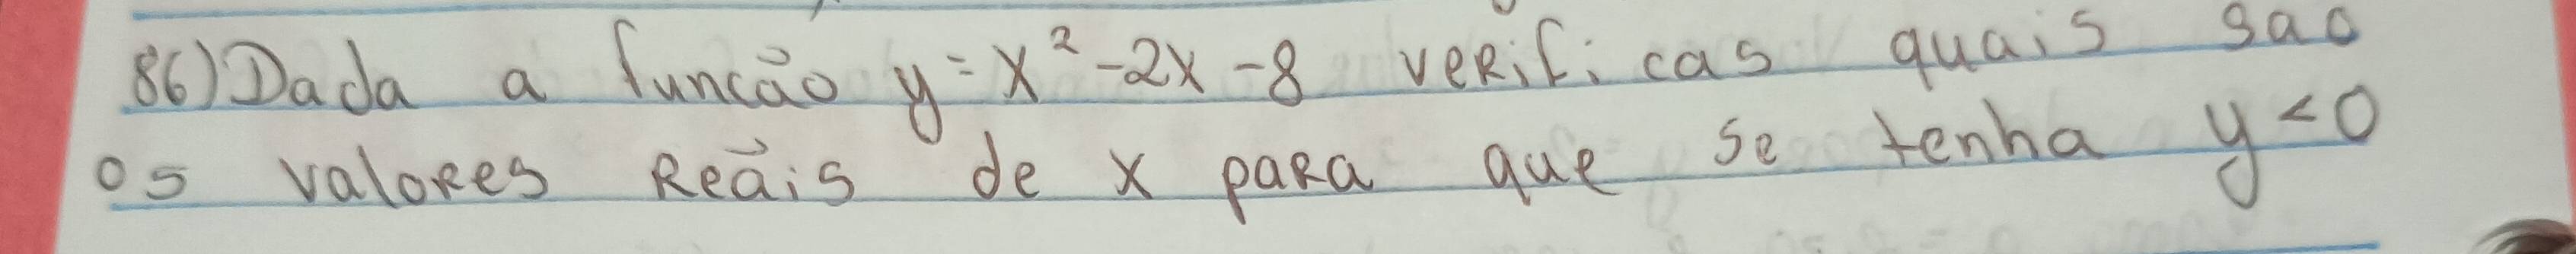 86) Dada a funcão y = x² - 2x - 8 verificas quais sao
os valores Reãis de x para que se tenha y < 0